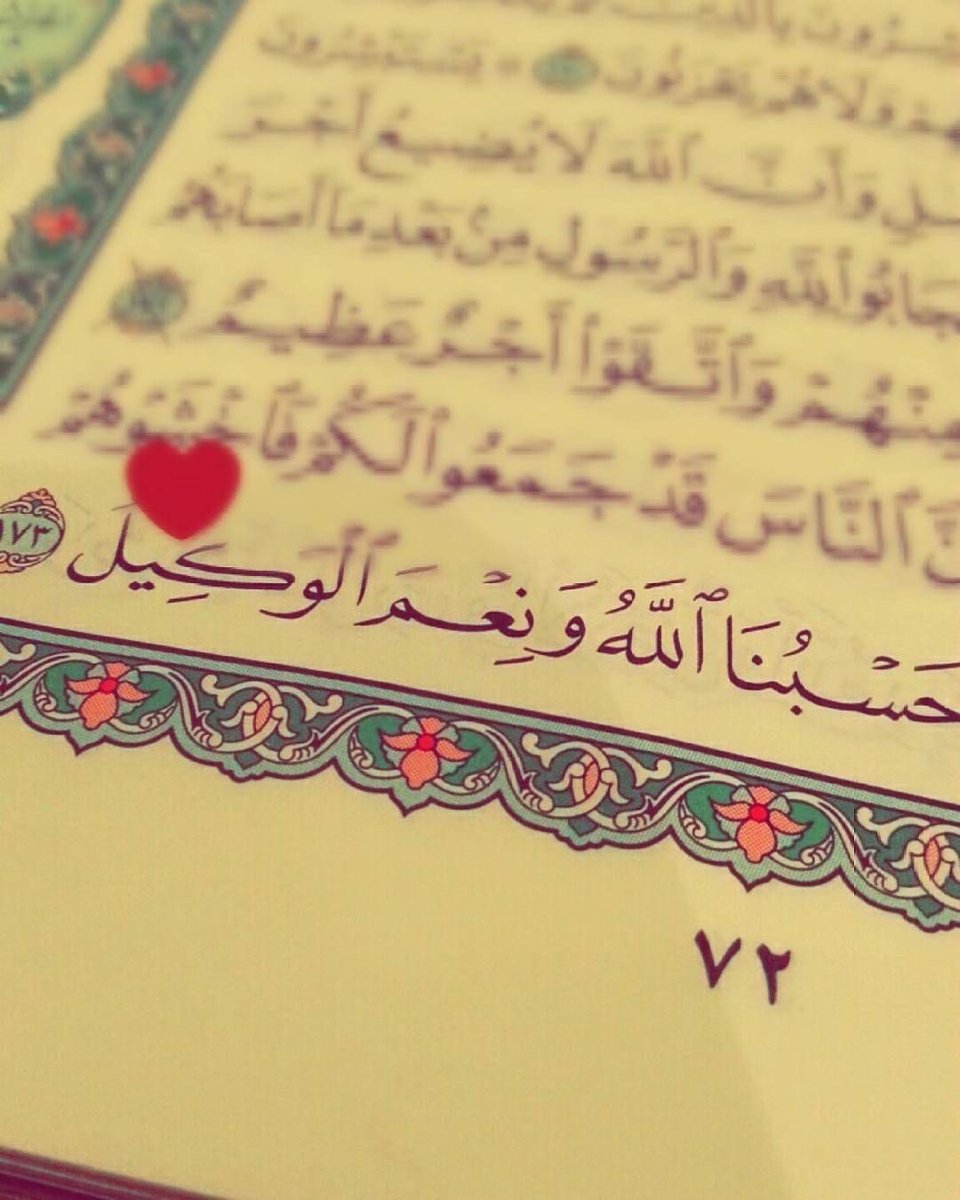 وَلَا هُمْ يَحْزَنُونَ ١٧٠ ۞ يَسْتَبْشِرُونَ
وَأَنَّ ٱللَّهَ لَا يُضِيعُ أَجْرَ
ٱللَّهِ وَٱلرَّسُولِ مِنۢ بَعْدِ مَآ أَصَابَهُمُ
مِنْهُمْ وَٱتَّقَوْا۟ أَجْرٌ عَظِيمٌ ١٧٢
ٱلنَّاسَ قَدْ جَمَعُوا۟ لَكُمْ فَٱخْشَوْهُمْ
حَسْبُنَا ٱللَّهُ وَنِعْمَ ٱلْوَكِيلُ ١٧٣
٧٢